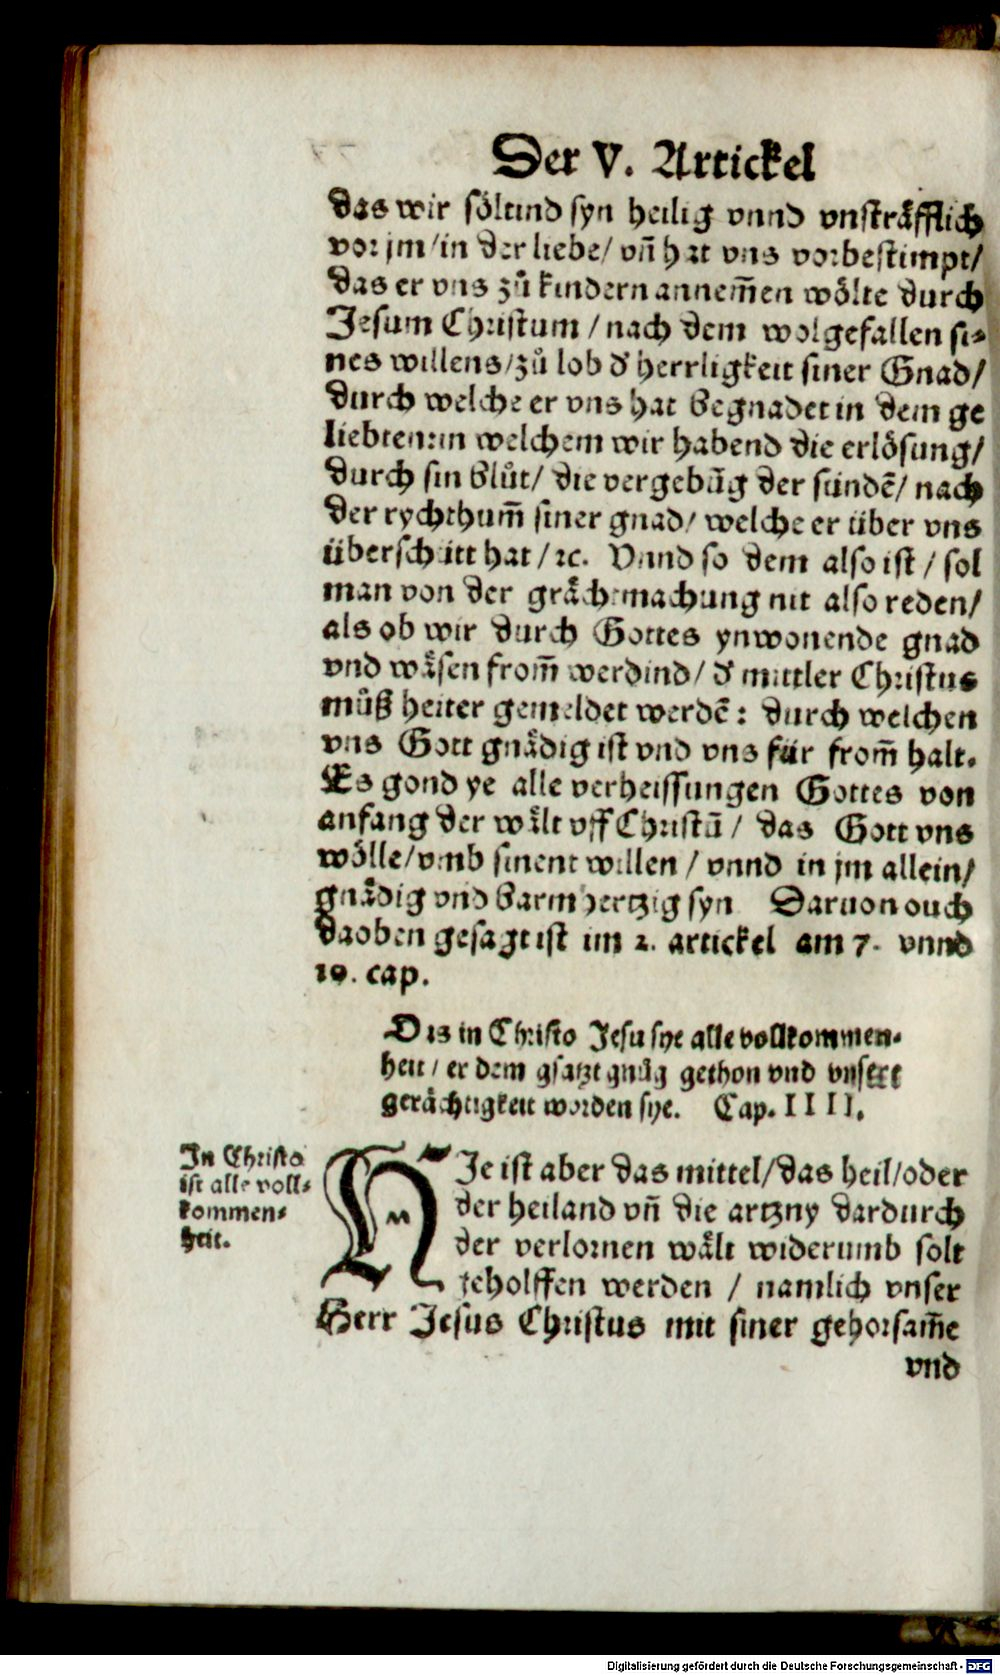 Der V. Artickel
das wir söltind syn heilig vnnd vnsträfflich
vor jm/in der liebe/ vñ hat vns vorbestimpt/
das er vns zů kindern annem̃en wölte durch
Jesum Christum / nach dem wolgefallen si⸗
nes willens/zů lob d' herrligkeit siner Gnad/
durch welche er vns hat begnadet in dem ge
liebten:in welchem wir habend die erlösung/
durch sin blůt/ die vergebũg der sündẽ/ nach
der rychthum̃ siner gnad/ welche er über vns
überschütt hat / ꝛc. Vnnd so dem also ist / sol
man von der grächtmachung nit also reden/
als ob wir durch Gottes ynwonende gnad
vnd wäsen from̃ werdind/ d' mittler Christus
můß heiter gemeldet werdẽ: durch welchen
vns Gott gnädig ist vnd vns für from̃ halt.
Es gond ye alle verheissungen Gottes von
anfang der wält vff Christũ / das Gott vns
wölle/vmb sinent willen / vnnd in jm allein/
gnädig vnd barmhertzig syn Daruon ouch
daoben gesagt ist im 2. artickel am 7. vnnd
10. cap.
Das in Christo Jesu sye alle vollkommen⸗
heit / er dem gsatzt gnůg gethon vnd vnsere
gerächtigkeit worden sye. Cap. IIII.
In Christo
ist alle voll⸗
kommen⸗
heit.
HJe ist aber das mittel/das heil/oder
der heiland vñ die artzny dardurch
der verlornen wält widerumb solt
geholffen werden / namlich vnser
Herr Jesus Christus mit siner gehorsam̃e
vnd
Digitalisierung gefördert durch die Deutsche Forschungsgemeinschaft - DFG